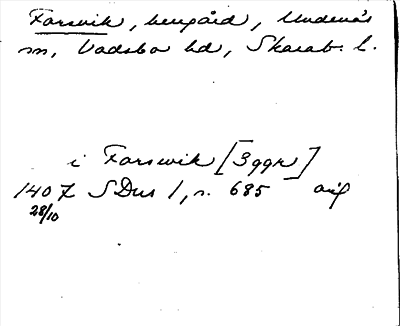 Forsvik, herrgård, Undenäs
sn, Vadsbo hd, Skarab. l.
i Forswik [3 ggr]
1407 SDns 1, s. 685 orig
28/10